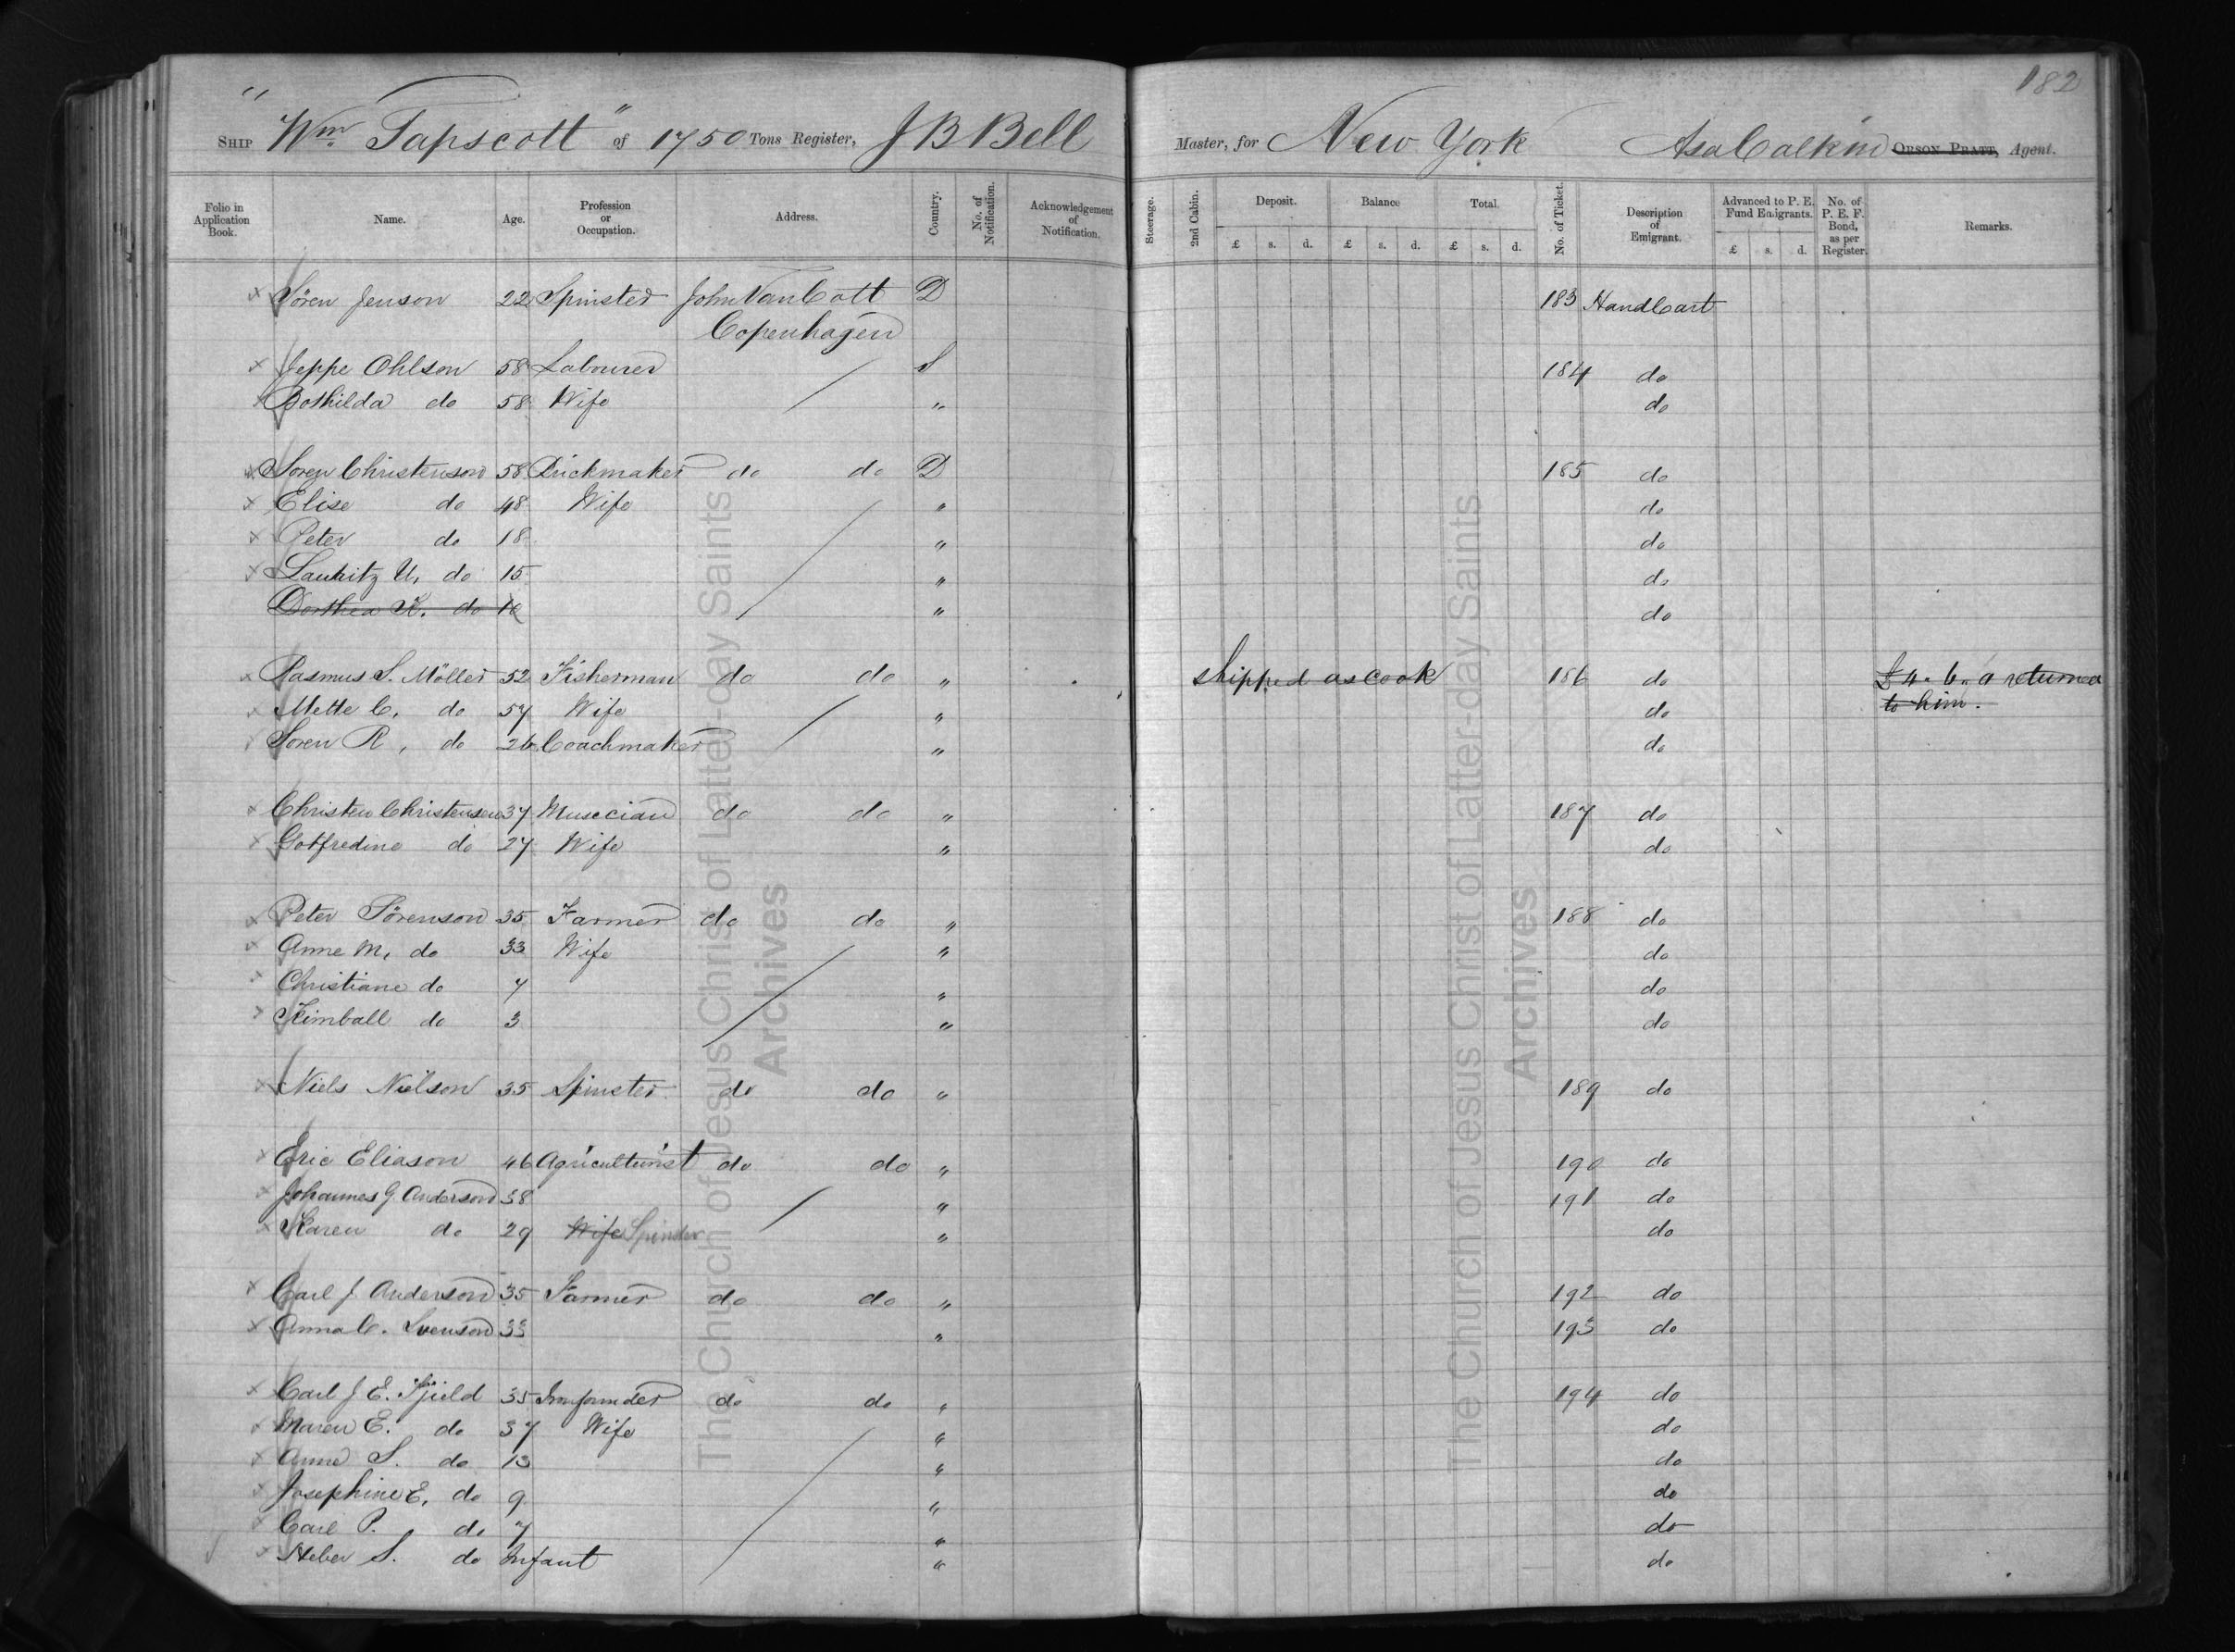 182
Ship "Wm. Tapscott" of 1750 Tons Register, J B Bell Master, for New York Asa Calkin Orson Pratt, Agent.
Folio in Application Book. Name. Age. Profession or Occupation. Address. Country. No. of Notification. Acknowledgement of Notification. Steerage. 2nd Cabin. Deposit. Balance Total No. of Ticket. Description of Emigrant. Advanced to P. E. Fund Emigrants. No. of P. E. F. Bond, as per Register. Remarks.
£ s. d. £ s. d. £ s. d. £ s. d.
x Sören Jenson 22 Spinster John Van Cott D 183 HandCart
Copenhagen
x Jeppe Ohlson 58 Labourer S 184 do
x Bothilda do 58 Wife " do
x Soren Christenson 58 Brickmaker do do D 185 do
x Elise do 48 Wife " do
x Peter do 18 " do
x Lauritz U. do 15 " do
Dorthea K. do " do
x Rasmus S. Möller 52 Fisherman do do " shipped as cook 186 do £4. 6. 0 returned
x Mette C. do 57 Wife " do to him.
Soren R, do 26 Coachmaker " do
x Christen Christensen 37 Musecian do do " 187 do
x Gotfredine do 27 Wife " do
x Peter Sörenson 35 Farmer do do " 188 do
x Anne M, do 33 Wife " do
x Christiane do 7 " do
x Kimball do 3 " do
x Niels Nielson 35 Spinster do do " 189 do
x Eric Eliason 46 Agriculturist do do " 190 do
x Johannes G. Anderson 38 " 191 do
x Karen do 29 Wife Spinster " do
x Carl J Anderson 35 Farmer do do " 192 do
x Anna C. Svenson 33 " 193 do
x Carl J E. Fjield 35 Ironfounder do do " 194 do
x Maren E. do 37 Wife " do
x Anne S. do 13 " do
x Josephine E, do 9 " do
x Carl P. do 7 " do
x Heber S. do Infant " do
The Church of Jesus Christ of Latter-day Saints
Archives
The Church of Jesus Christ of Latter-day Saints
Archives